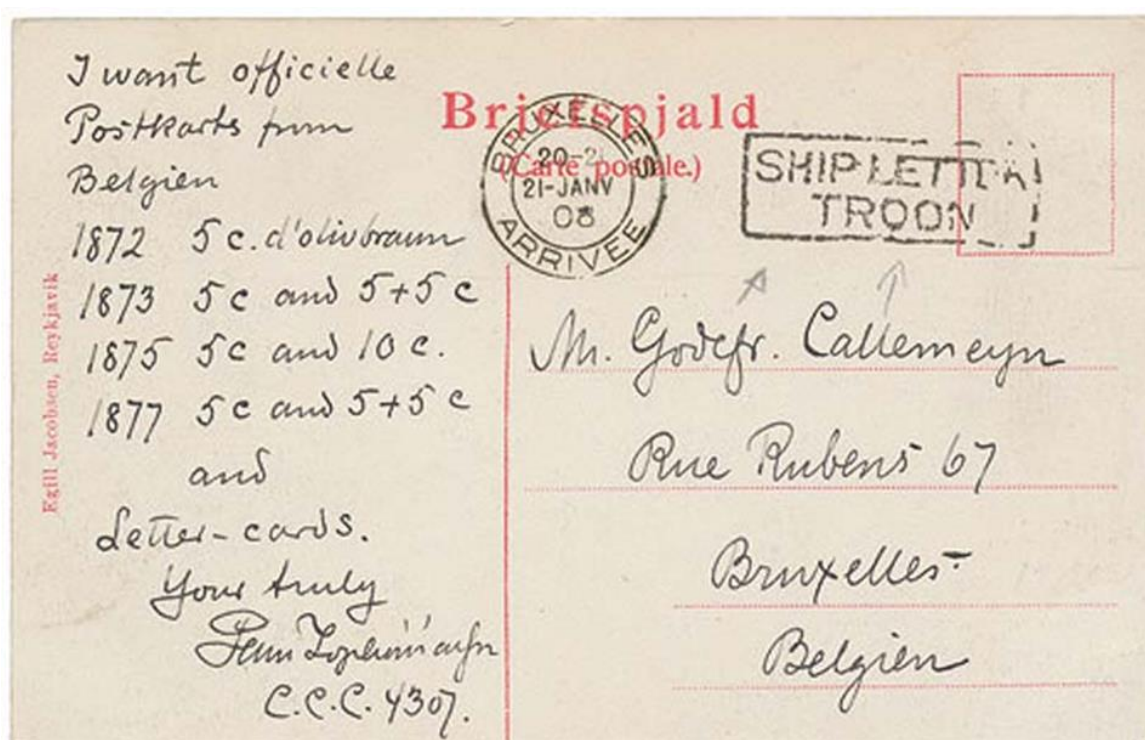 I want officielle
Postkarts from
Belgien
1872 5 c. d'olivbraun
1873 5 c and 5+5 c
1875 5 c and 10 c.
1877 5 c and 5+5 c
and
Letter-cards.
Your truly
C.C.C. 4307.
Egill Jacobsen, Reykjavik
Brjefspjald
(Carte postale.)
BRUXELLES
21-JANV
08
ARRIVEE
SHIP LETTER
TROON
Mr. Godefr. Callemeyn
Rue Rubens 67
Bruxelles
Belgien